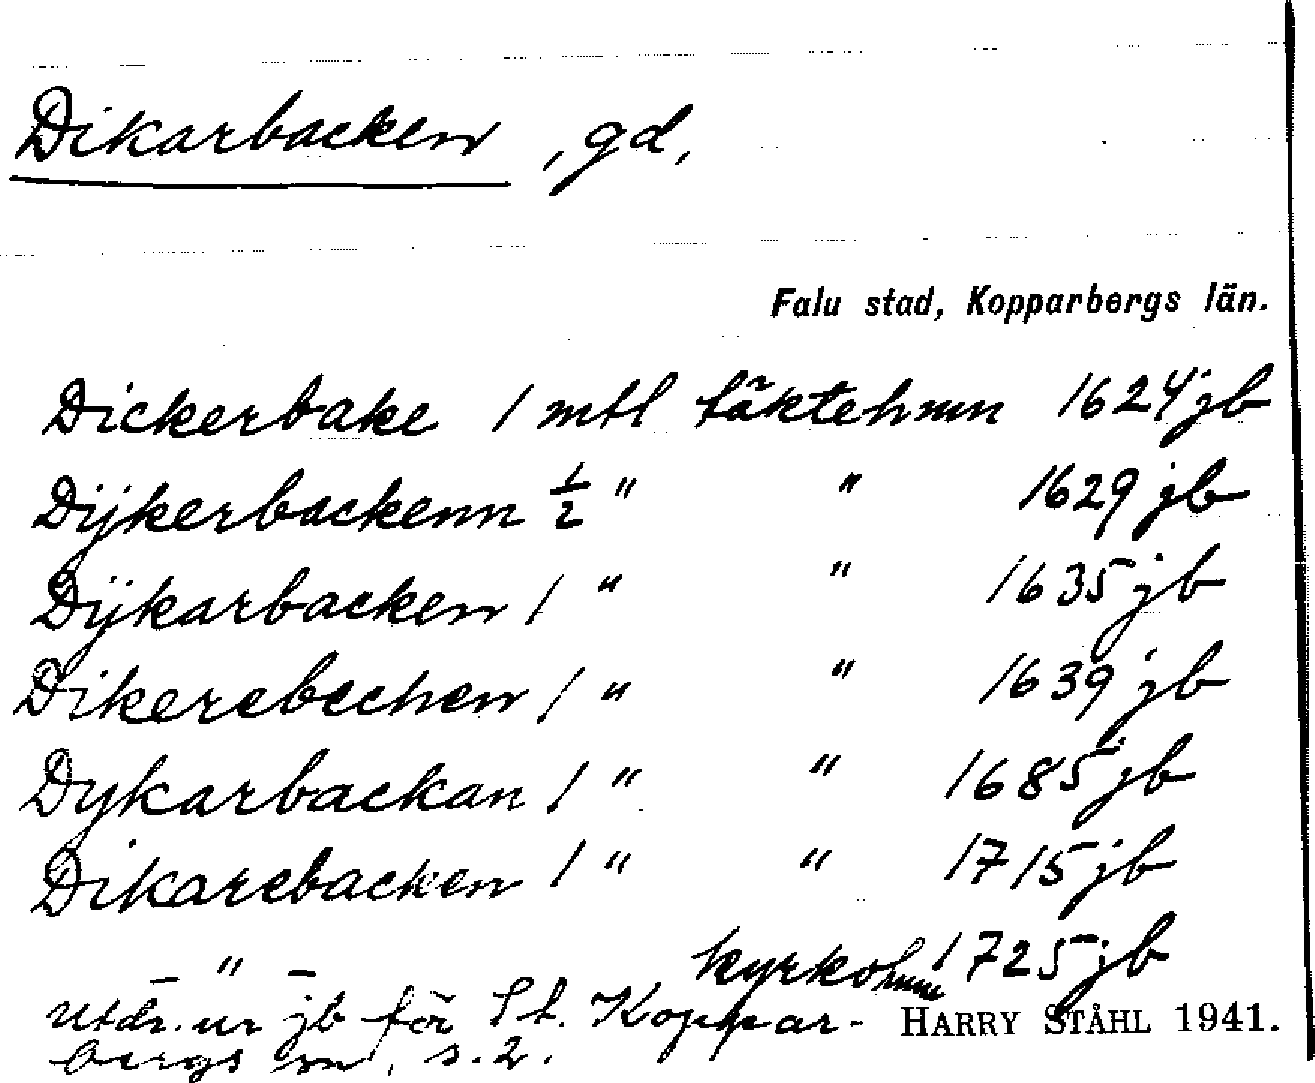 Dikarbacken, gd,
Falu stad, Kopparbergs län.
Dickerbake 1 mtl täktehmn 1624 jb
Dijkerbackenn ½ " " 1629 jb
Dijkarbacken 1 " " 1635 jb
Dikerebechen 1 " " 1639 jb
Dykarbackan 1 " " 1685 jb
Dikarebacken 1 " " 1715 jb
– " – kyrkohmn 1725 jb
Utdr. ur jb för St. Koppar- HARRY STÅHL 1941.
bergs sn, s. 2.